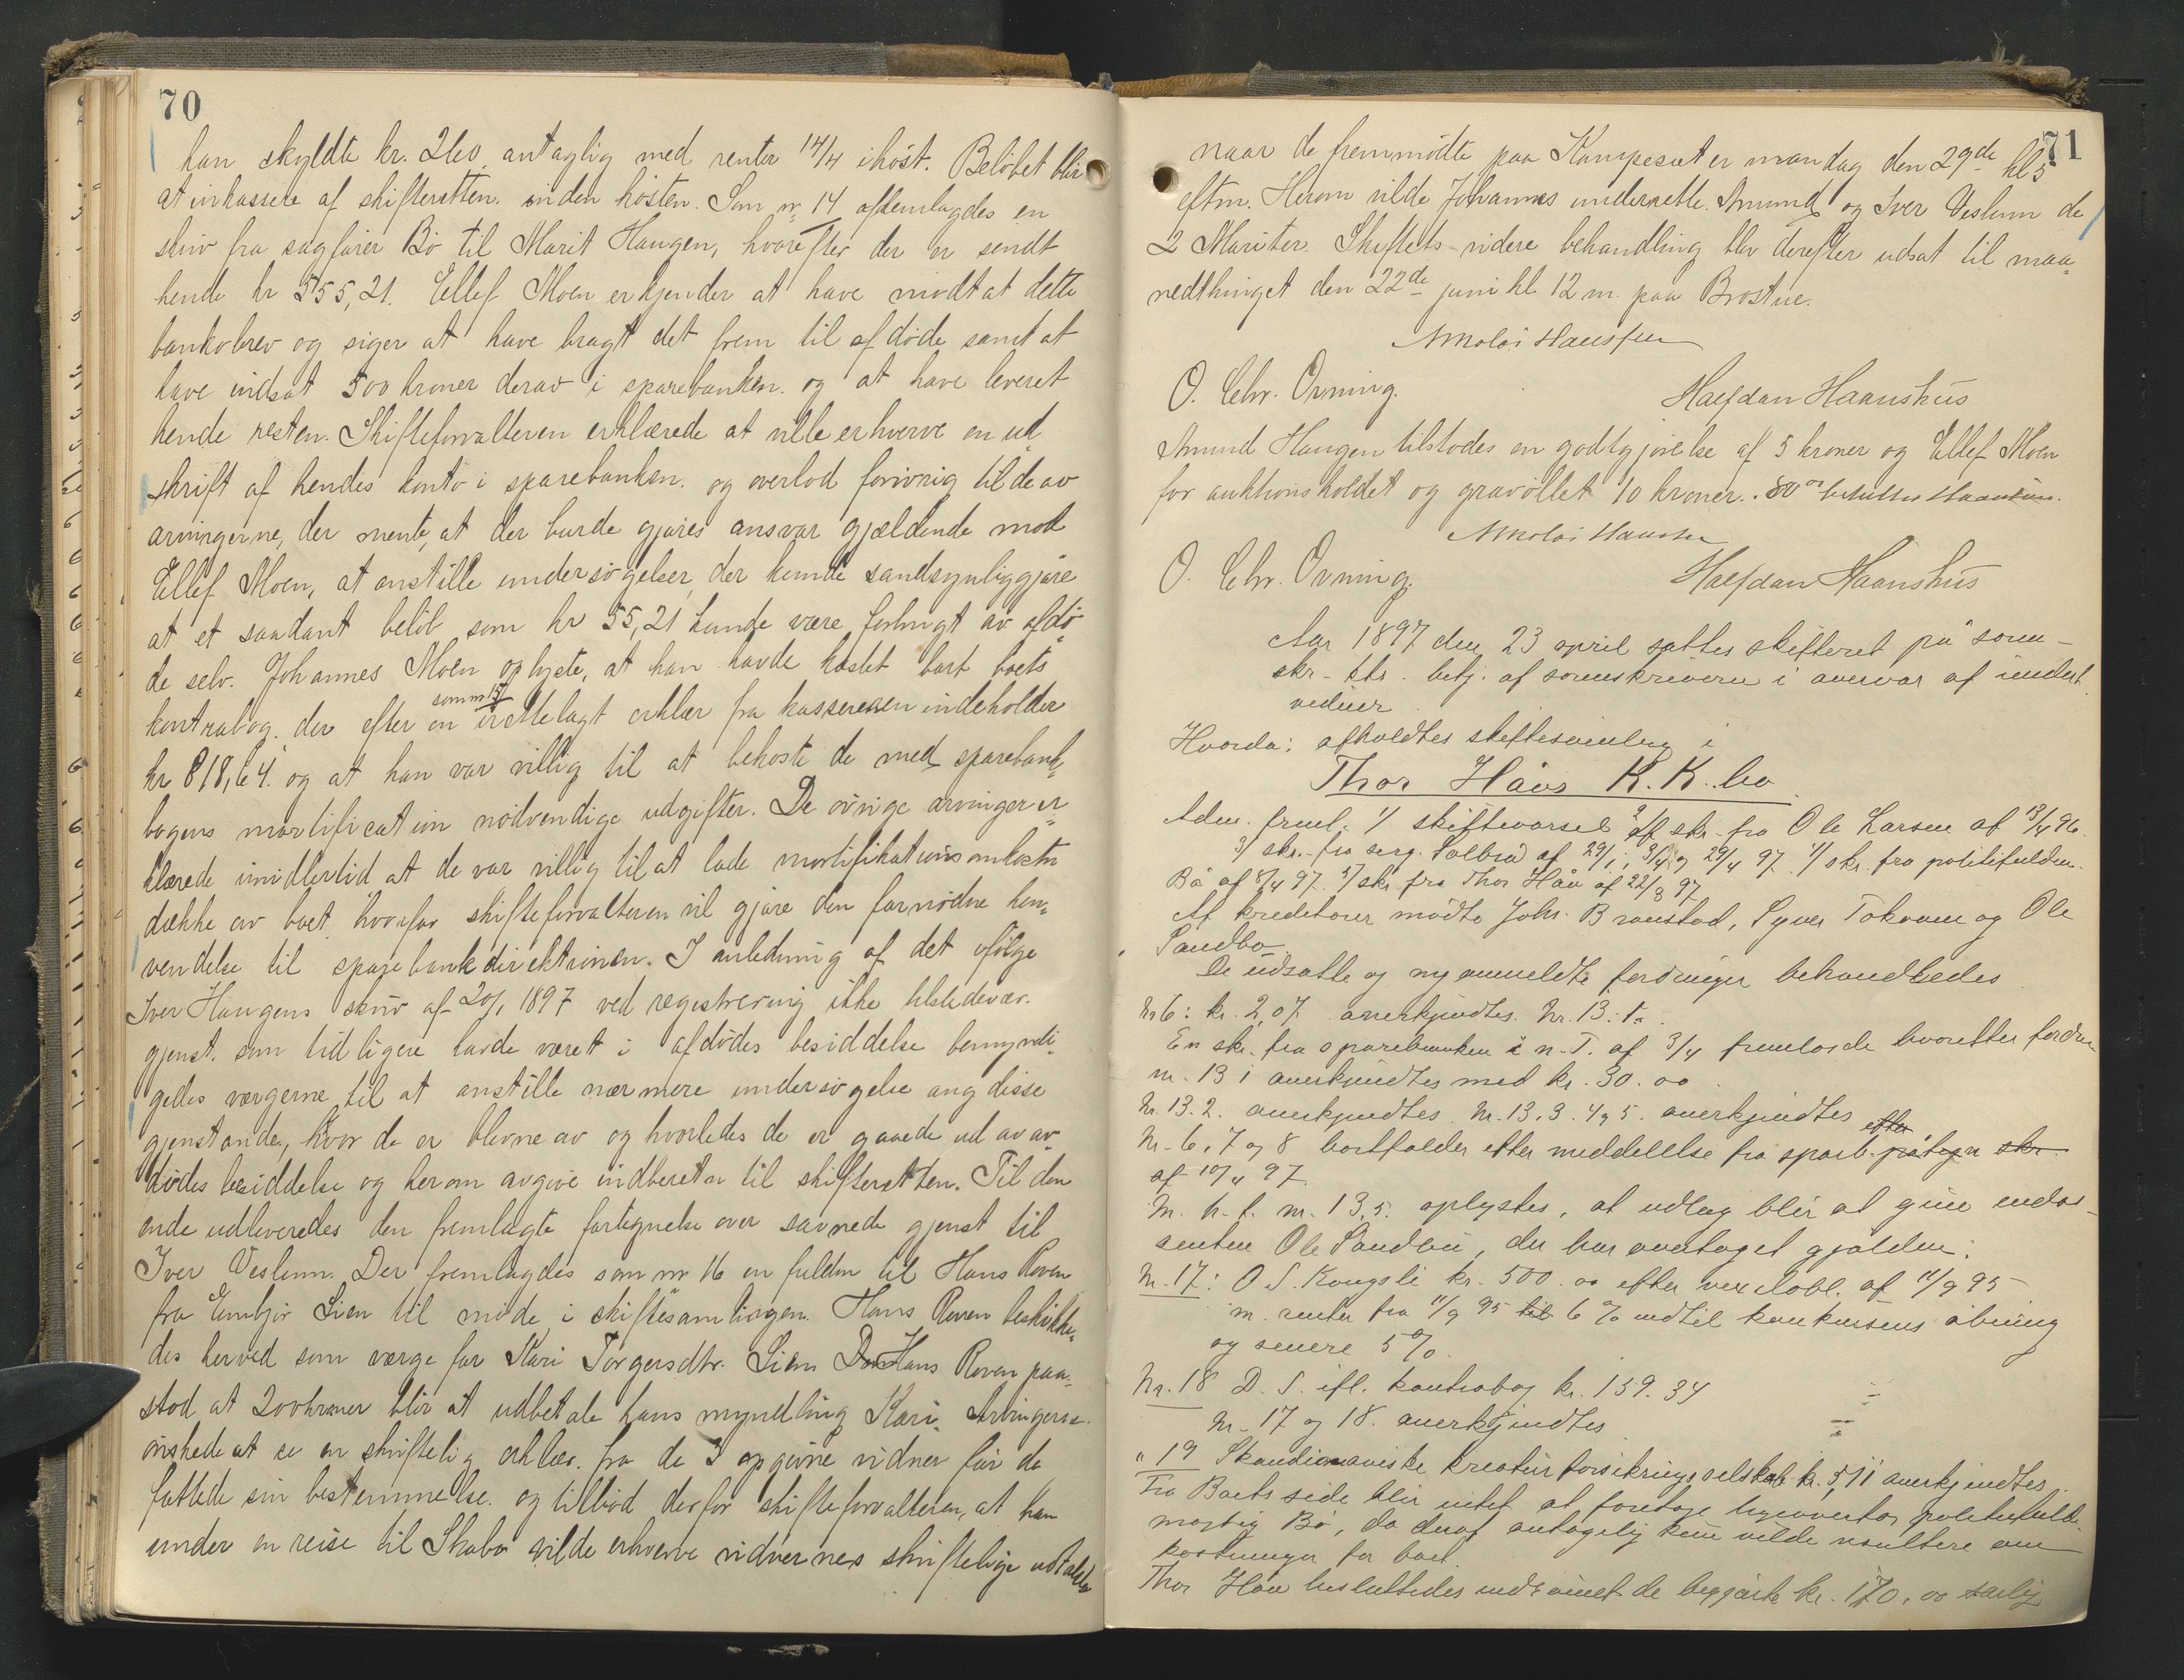 70
han skyldte kr. 260. antaglig med renter 14/4 ihöst. Beløbet blir
at inkassere af skifteretten. inden hösten. Som nr 14 aftemlagdes en
skriv fra sagfører Bø til Marit Haugen, hvorefter der er sendt
hende kr 555,21. Ellef Moen erkjender at have modtat dette
bankobrev og siger at have bragt det frem til afdøde samt at
have indsat 500 kroner derav i sparebanken. og at have leveret
hende resten. Skifteforvalteren erklærede at ville erhverve en ud
skrift af hendes konto i sparebanken. og overlod forövrig til de av
arvingerne, der mente, at der burde gjøres ansvar gjældende mod
Ellef Moen, at anstille undersøgelser, der kunde sandsynliggjøre
at et saadant belöb som kr 55,21 kunde være forbrugt av afdø-
de selv. Johannes Moen oplyste, at han havde kastet bort boets
kontrabog. der efter en som nr 15 irettelagt erklær fra kassereren indeholder
kr 818,64. og at han var villig til at bekoste de med sparebank-
bogens mortification nødvendige udgifter. De øvrige arvinger er-
klærede imidlertid at de var villig til at lade mortifikationsomkostn
dække av boet hvorfor skifteforvalteren vil gjøre den fornødne hen-
vendelse til sparebankdirektionen. I anledning af det ifølge
Iver Haugens skriv af 20/1 1897 ved registrering ikke tilstedevær.
gjenst. som tidligere havde været i afdødes besiddelse bemyndi-
gedes værgerne til at anstille nærmere undersøgelse ang disse
gjenstande, hvor de er blevne av og hvorledes de er gaaede ud av av-
dødes besiddelse og herom avgive indberetn til skifteretten. Til den
ende udleveredes den fremlagte fortegnelse over savnede gjenst til
Iver Veslum. Der fremlagdes som nr 16 en fuldm til Hans Roven
fra Embjør Lien til møde i skiftesamlingen. Hans Roven beskikke-
des herved som værge for Kari Torgersdtr. Lien Hans Roven paa-
stod at 200 kroner blir at udbetale hans myndling Kari. Arvingerne
ønskede at se en skriftelig erklær. fra de 3 opgivne vidner før de
fattede sin bestemmelse. og tilbød derfor skifteforvalteren, at han
under en reise til Skabo vilde erhverve vidnernes skriftelige udtalelse
71
naar de fremmødte paa Kampesæter mandag den 29de kl 5
eftm. Herom vilde Johannes underrette. Amund og Iver Veslum de
2 Mariter. Skiftets videre behandling blev derefter udsat til maa-
nedthinget den 22de juni kl 12 m. paa Brostue.
Nikolai Hanssen
O. Chr. Orning.
Halfdan Haanshus
Amund Haugen tilstodes en godtgjørelse af 5 kroner og Ellef Moen
for auktionsholdet og gravöllet 10 kroner.
Nikolai Hanssen
O. Chr. Orning.
Halfdan Haanshus
Aar 1897 den 23 april sattes skifteret på soren-
skr-ktr. betj. af sorenskriveren i overvær af undert.
vidner.
Hvorda: afholdtes skiftesamling i
Thor Håvs K. K. bo.
Adm. freml. 1/ skiftevarsel 2/ skr. fra Ole Larsen af 13/4 96.
3/ skr. fra serg. Solbrå af 29/1, 3/4 og 29/4 97. 4/ skr. fra politifuldm.
Bö af 8/4 97. 5/ skr. fra Thor Håv af 22/3 97
Af kreditorer mødte Johs. Branstad, Syver Tokvam og Ole
Sandbo.
De udsatte og nyanmeldte fordringer behandledes
Nr 6: kr. 2,07 anerkjendtes. Nr. 13: 1.
En skr. fra sparebanken i n. F. af 3/4 fremlagde hvorefter fordr.
nr. 13 1 anerkjendtes med kr. 30.00
Nr. 13.2. anerkjendtes. Nr. 13.3. 4 og 5. anerkjendtes
Nr. 6, 7 og 8 bortfalder efter meddelelse fra spareb. påtegn efter skr
af 10/4 97.
M. h. t. nr. 13.5. oplystes, at udlæg blir at give endos-
senten Ole Sandbu, der har overtaget gjælden.
Nr. 17: O. S. Kongsli kr. 500.00 efter vexelobl. af 11/9 95
m. renter fra 11/9 95 til 6 % indtil konkursens åbning
og senere 5 %.
Nr. 18 D. S. ifl. kontrabog kr. 139.34
Nr. 17 og 18. anerkjendtes
" 19 Skandinaviske kreaturforsikringsselskab kr. 5,11 anerkjendtes.
Fra Boets side blir intet at foretage ligeoverfor politifuld-
mægtig Bö, da deraf antagelig kun vilde resultere om-
kostninger for boet.
Thor Håv besluttedes indrömmet de begjærte kr. 170.00 særlig